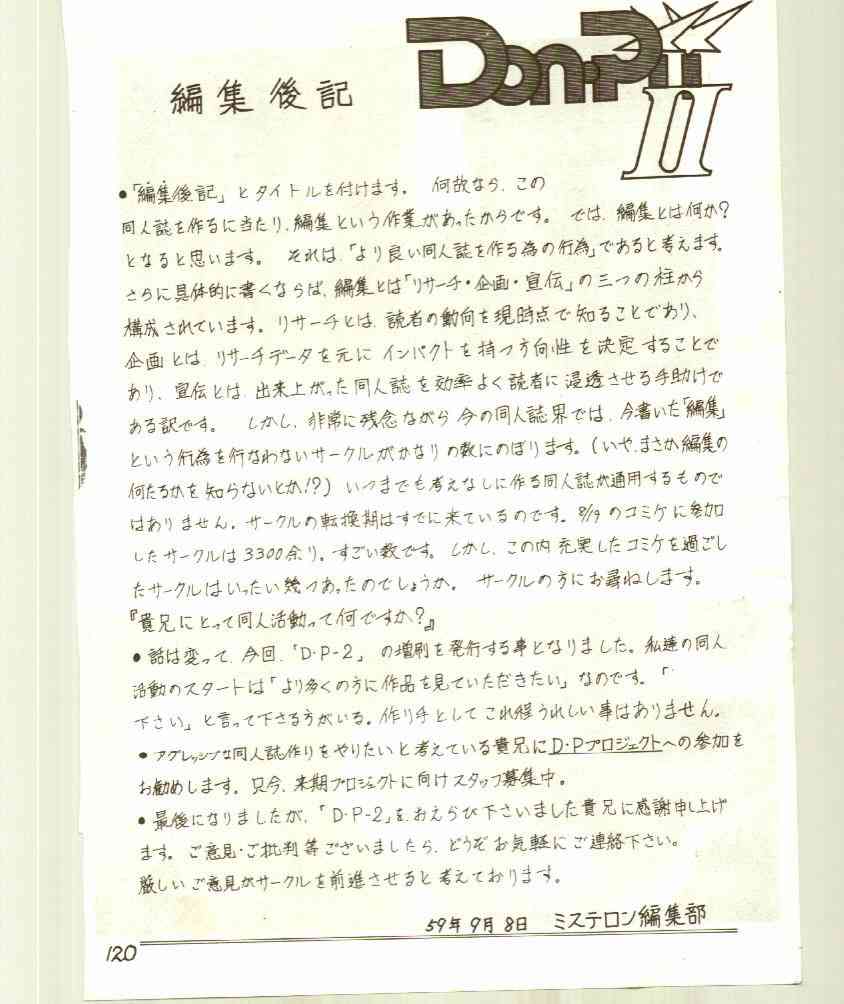 編集後記
Don・Pii
II
●「編集後記」とタイトルを付けます。 何故なら、この
同人誌を作るに当たり、編集という作業があったからです。 では、編集とは何か?
となると思います。 それは、「より良い同人誌を作る為の行為」であると考えます。
さらに具体的に書くならば、編集とは「リサーチ・企画・宣伝」の三つの柱から
構成されています。リサーチとは、読者の動向を現時点で知ることであり、
企画とは、リサーチデータを元にインパクトを持つ方向性を決定することで
あり、宣伝とは、出来上がった同人誌を効率よく読者に浸透させる手助けで
ある訳です。 しかし、非常に残念ながら今の同人誌界では、今書いた「編集」
という行為を行なわないサークルがかなりの数にのぼります。(いや、まさか編集の
何たるかを知らないとか!?)いつまでも考えなしに作る同人誌が通用するもので
はありません。サークルの転換期はすでに来ているのです。8/19のコミケに参加
したサークルは3300余り。すごい数です。しかし、この内充実したコミケを過ごし
たサークルはいったい幾つあったのでしょうか。 サークルの方にお尋ねします。
『貴兄にとって同人活動って何ですか?』
●話は変って、今回、「D・P-2」の増刷を発行する事となりました。私達の同人
活動のスタートは「より多くの方に作品を見ていただきたい」なのです。「
下さい」と言って下さる方がいる。作り手としてこれ程うれしい事はありません。
●アグレッシブな同人誌作りをやりたいと考えている貴兄にD・Pプロジェクトへの参加を
お勧めします。只今、来期プロジェクトに向けスタッフ募集中。
●最後になりましたが、「D・P-2」を、おえらび下さいました貴兄に感謝申し上げ
ます。ご意見・ご批判等ございましたら、どうぞお気軽にご連絡下さい。
厳しいご意見がサークルを前進させると考えております。
59年9月8日 ミステロン編集部
120